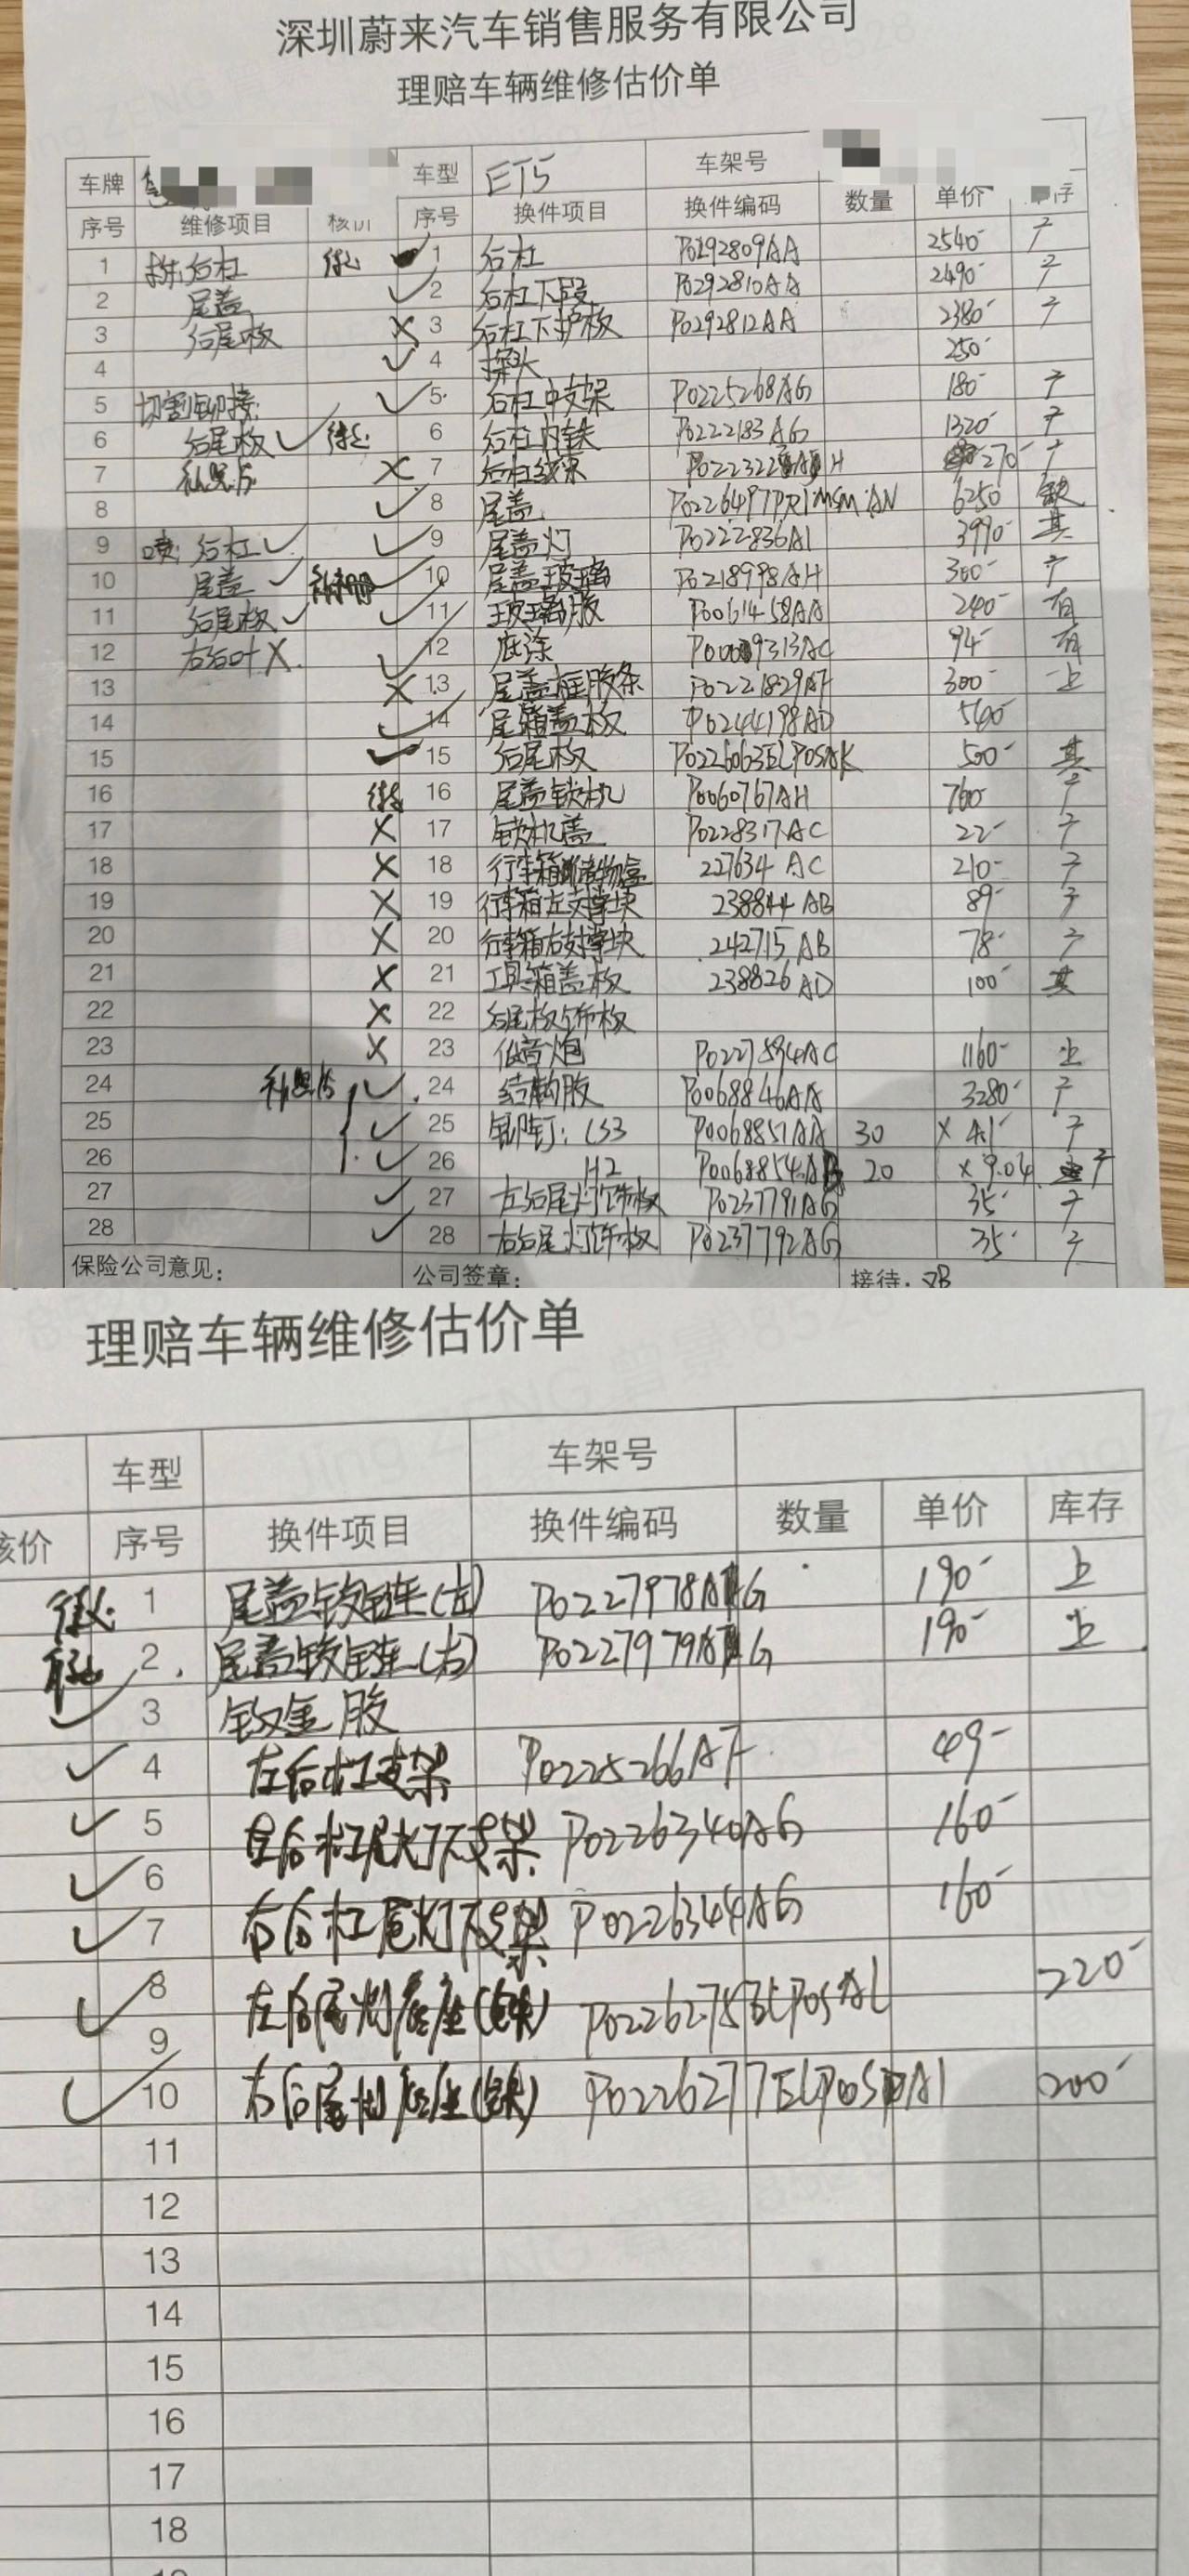 深圳蔚来汽车销售服务有限公司
理赔车辆维修估价单
车牌 车型 ET5 车架号
序号 维修项目 序号 换件项目 换件编码 数量 单价 存
1 拆:后杠 待 ✓ 1 后杠 P0292809AA 2540-
2 尾盖 ✓ 2 后杠下段 P0292810AA 2490-
3 后尾板 X 3 后杠下护板 P0292812AA 2380-
4 ✓ 4 探头 250-
5 切割铆接: ✓ 5 后杠中支架 P0225268AG 180-
6 后尾板 ✓ 6 后杠内铁 P0222183AG 1320-
7 X 7 后杠 270-
8 ✓ 8 尾盖 6250 缺
9 喷: 后杠 ✓ ✓ 9 尾盖灯 P0222836AI 3990-
10 尾盖 ✓ 10 尾盖玻璃 P0218998AH 300-
11 后尾板 ✓ ✓ 11 玻璃胶 P0061458AA 240- 有
12 右后叶 X ✓ 12 底涂 94- 有
13 X 13 尾盖框胶条 P0221829AF 300- 上
14 ✓ 14 尾箱盖板 P0244198AD 540-
15 ✓ 15 后尾板 P0226063ELPOSAK 500-
16 16 尾盖锁机 P0060767AH 760-
17 X 17 锁机盖 P0228317AC 22-
18 X 18 行车箱储物盒 227634 AC 210-
19 X 19 行车箱左支撑块 238844 AB 89-
20 X 20 行车箱右支撑块 242715 AB 78-
21 X 21 工具箱盖板 238826 AD 100-
22 X 22 后尾板饰板
23 X 23 低音炮 P0227594AC 1160- 上
24 ✓ 24 结构胶 P0068846AA 3280-
25 ✓ 25 铆钉: CS3 P0068851AA 30 × 4.1-
26 ✓ 26 H2 P0068854AB 20 × 9.04
27 ✓ 27 左后尾灯饰板 P0237791AG 35-
28 ✓ 28 右后尾灯饰板 P0237792AG 35-
保险公司意见: 公司签章: 接待:
理赔车辆维修估价单
车型 车架号
核价 序号 换件项目 换件编码 数量 单价 库存
1 尾盖铰链(左) P0227978AG 190- 上
2 尾盖铰链(右) P0227979AG 190- 上
✓ 3 钣金胶
✓ 4 左后杠支架 P0225266AF 49-
✓ 5 左后杠尾灯下支架 P0226340AG 160-
✓ 6
✓ 7 右后杠尾灯下支架 P0226344AG 160-
✓ 8 左后尾灯底座(铁) P0226275ELPOSAL 220-
9
✓ 10 右后尾灯底座(铁) P0226277ELPOSAI 200-
11
12
13
14
15
16
17
18